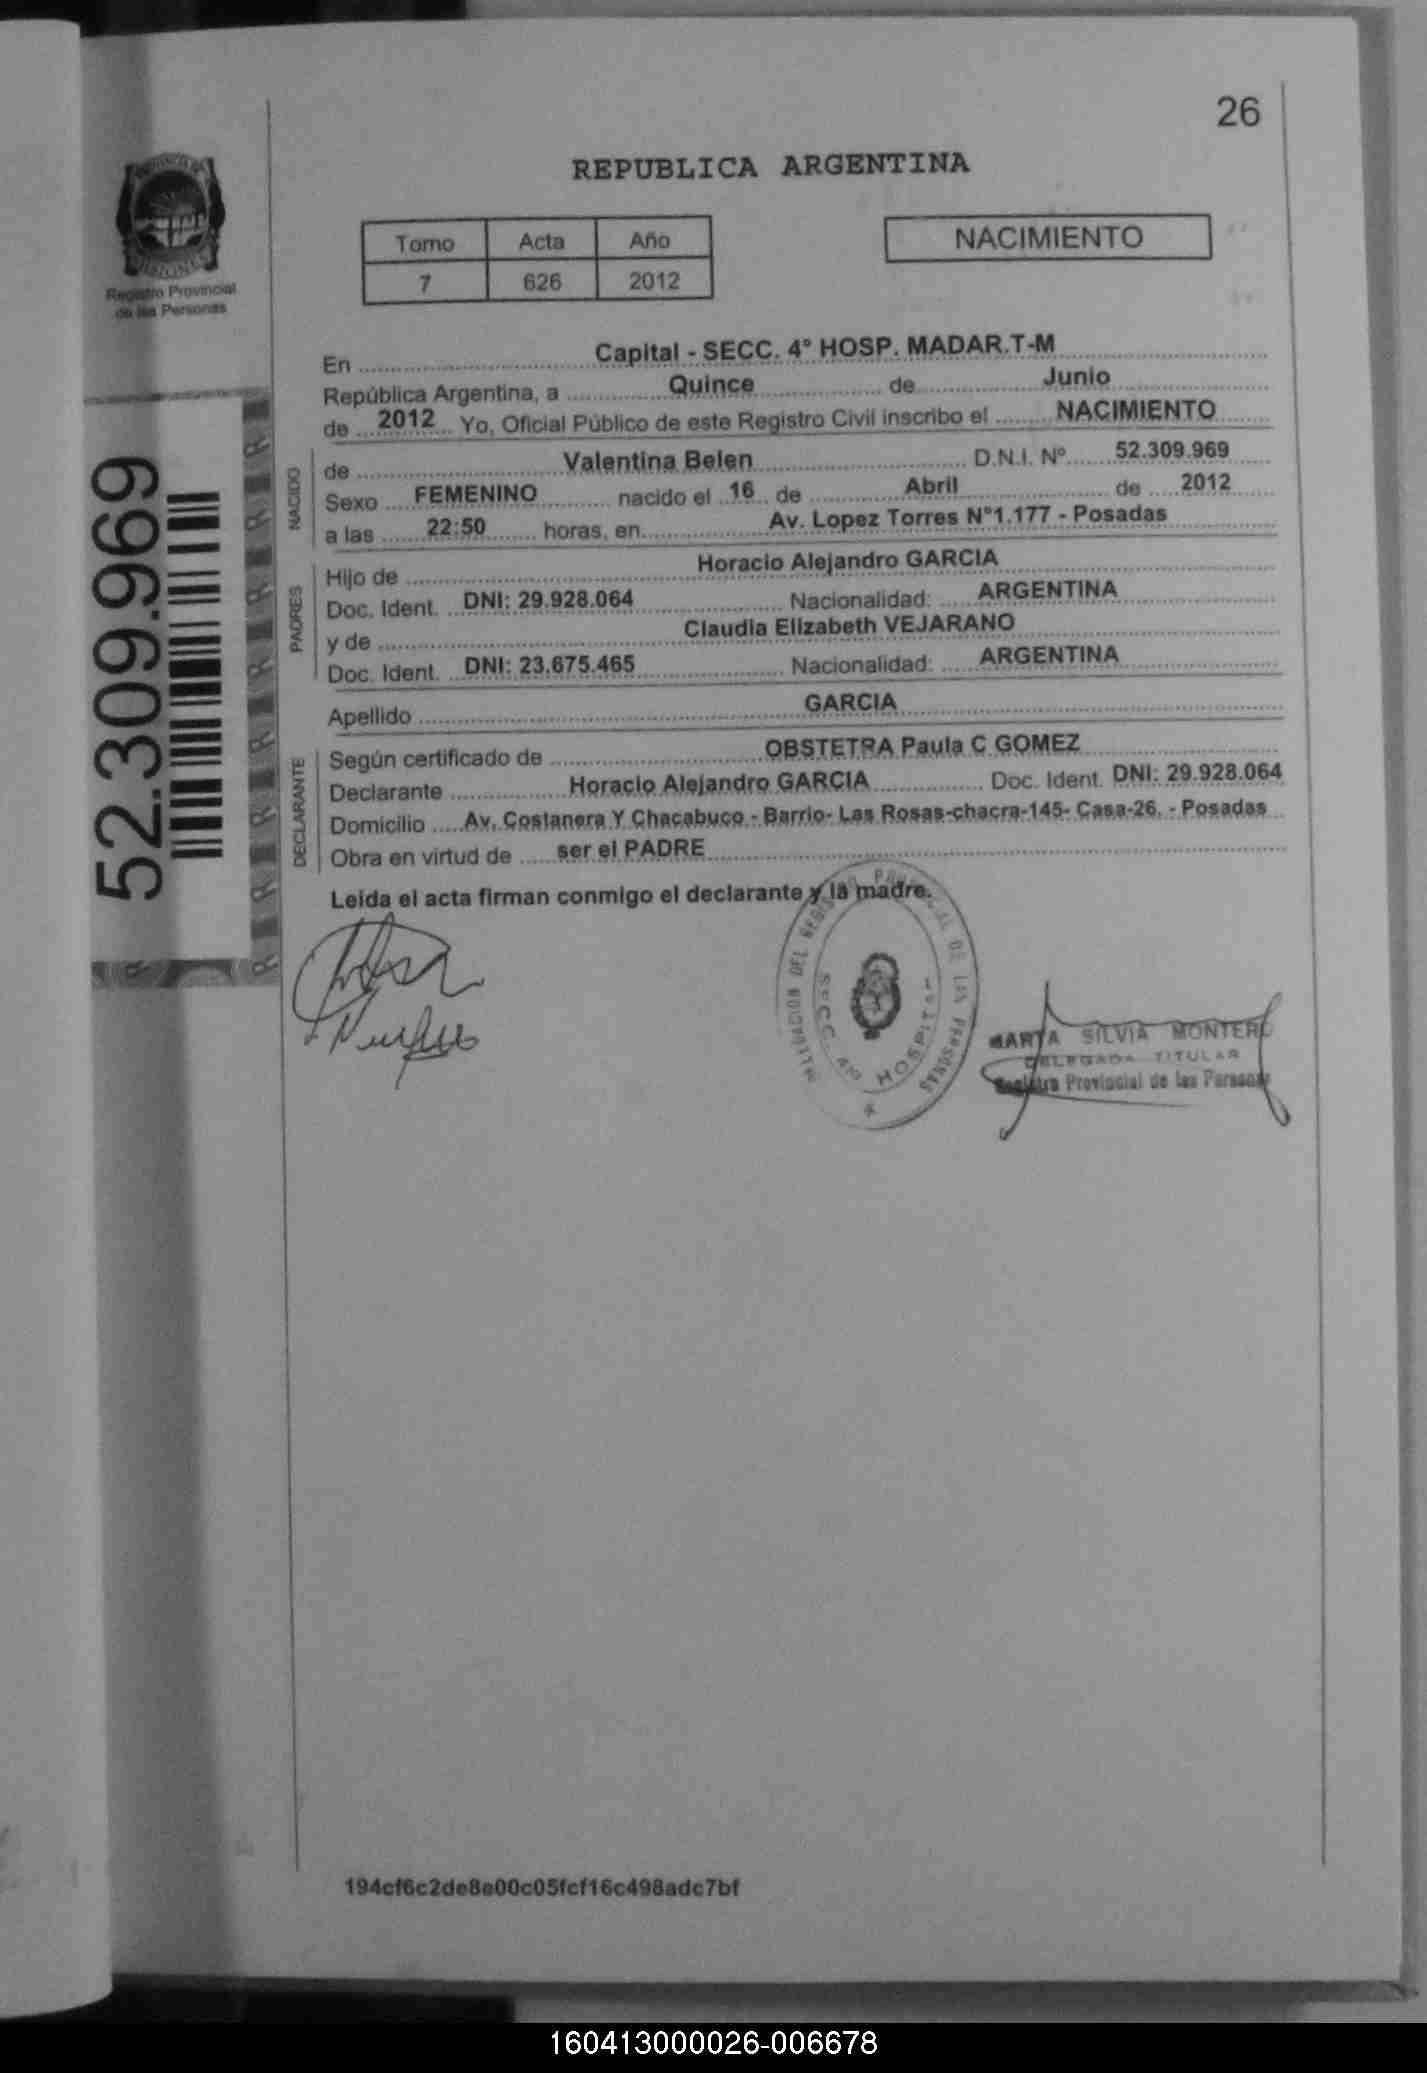 26
REPUBLICA ARGENTINA
Tomo Acta Año
7 626 2012
NACIMIENTO
Registro Provincial
de las Personas
En Capital - SECC. 4° HOSP. MADAR.T-M
República Argentina, a Quince de Junio
de 2012 Yo, Oficial Público de este Registro Civil inscribo el NACIMIENTO
NACIDO
de Valentina Belen D.N.I. Nº 52.309.969
Sexo FEMENINO nacido el 16 de Abril de 2012
a las 22:50 horas, en Av. Lopez Torres N°1.177 - Posadas
PADRES
Hijo de Horacio Alejandro GARCIA
Doc. Ident. DNI: 29.928.064 Nacionalidad: ARGENTINA
y de Claudia Elizabeth VEJARANO
Doc. Ident. DNI: 23.675.465 Nacionalidad: ARGENTINA
Apellido GARCIA
DECLARANTE
Según certificado de OBSTETRA Paula C GOMEZ
Declarante Horacio Alejandro GARCIA Doc. Ident. DNI: 29.928.064
Domicilio Av. Costanera Y Chacabuco - Barrio- Las Rosas-chacra-145- Casa-26. - Posadas
Obra en virtud de ser el PADRE
Leida el acta firman conmigo el declarante y la madre.
52.309.969
DELEGACION DEL REGISTRO PROVINCIAL DE LAS PERSONAS
SECC. 4ta HOSPITAL
MARTA SILVIA MONTERO
DELEGADA TITULAR
Registro Provincial de las Personas
194cf6c2de8e00c05fcf16c498adc7bf
160413000026-006678